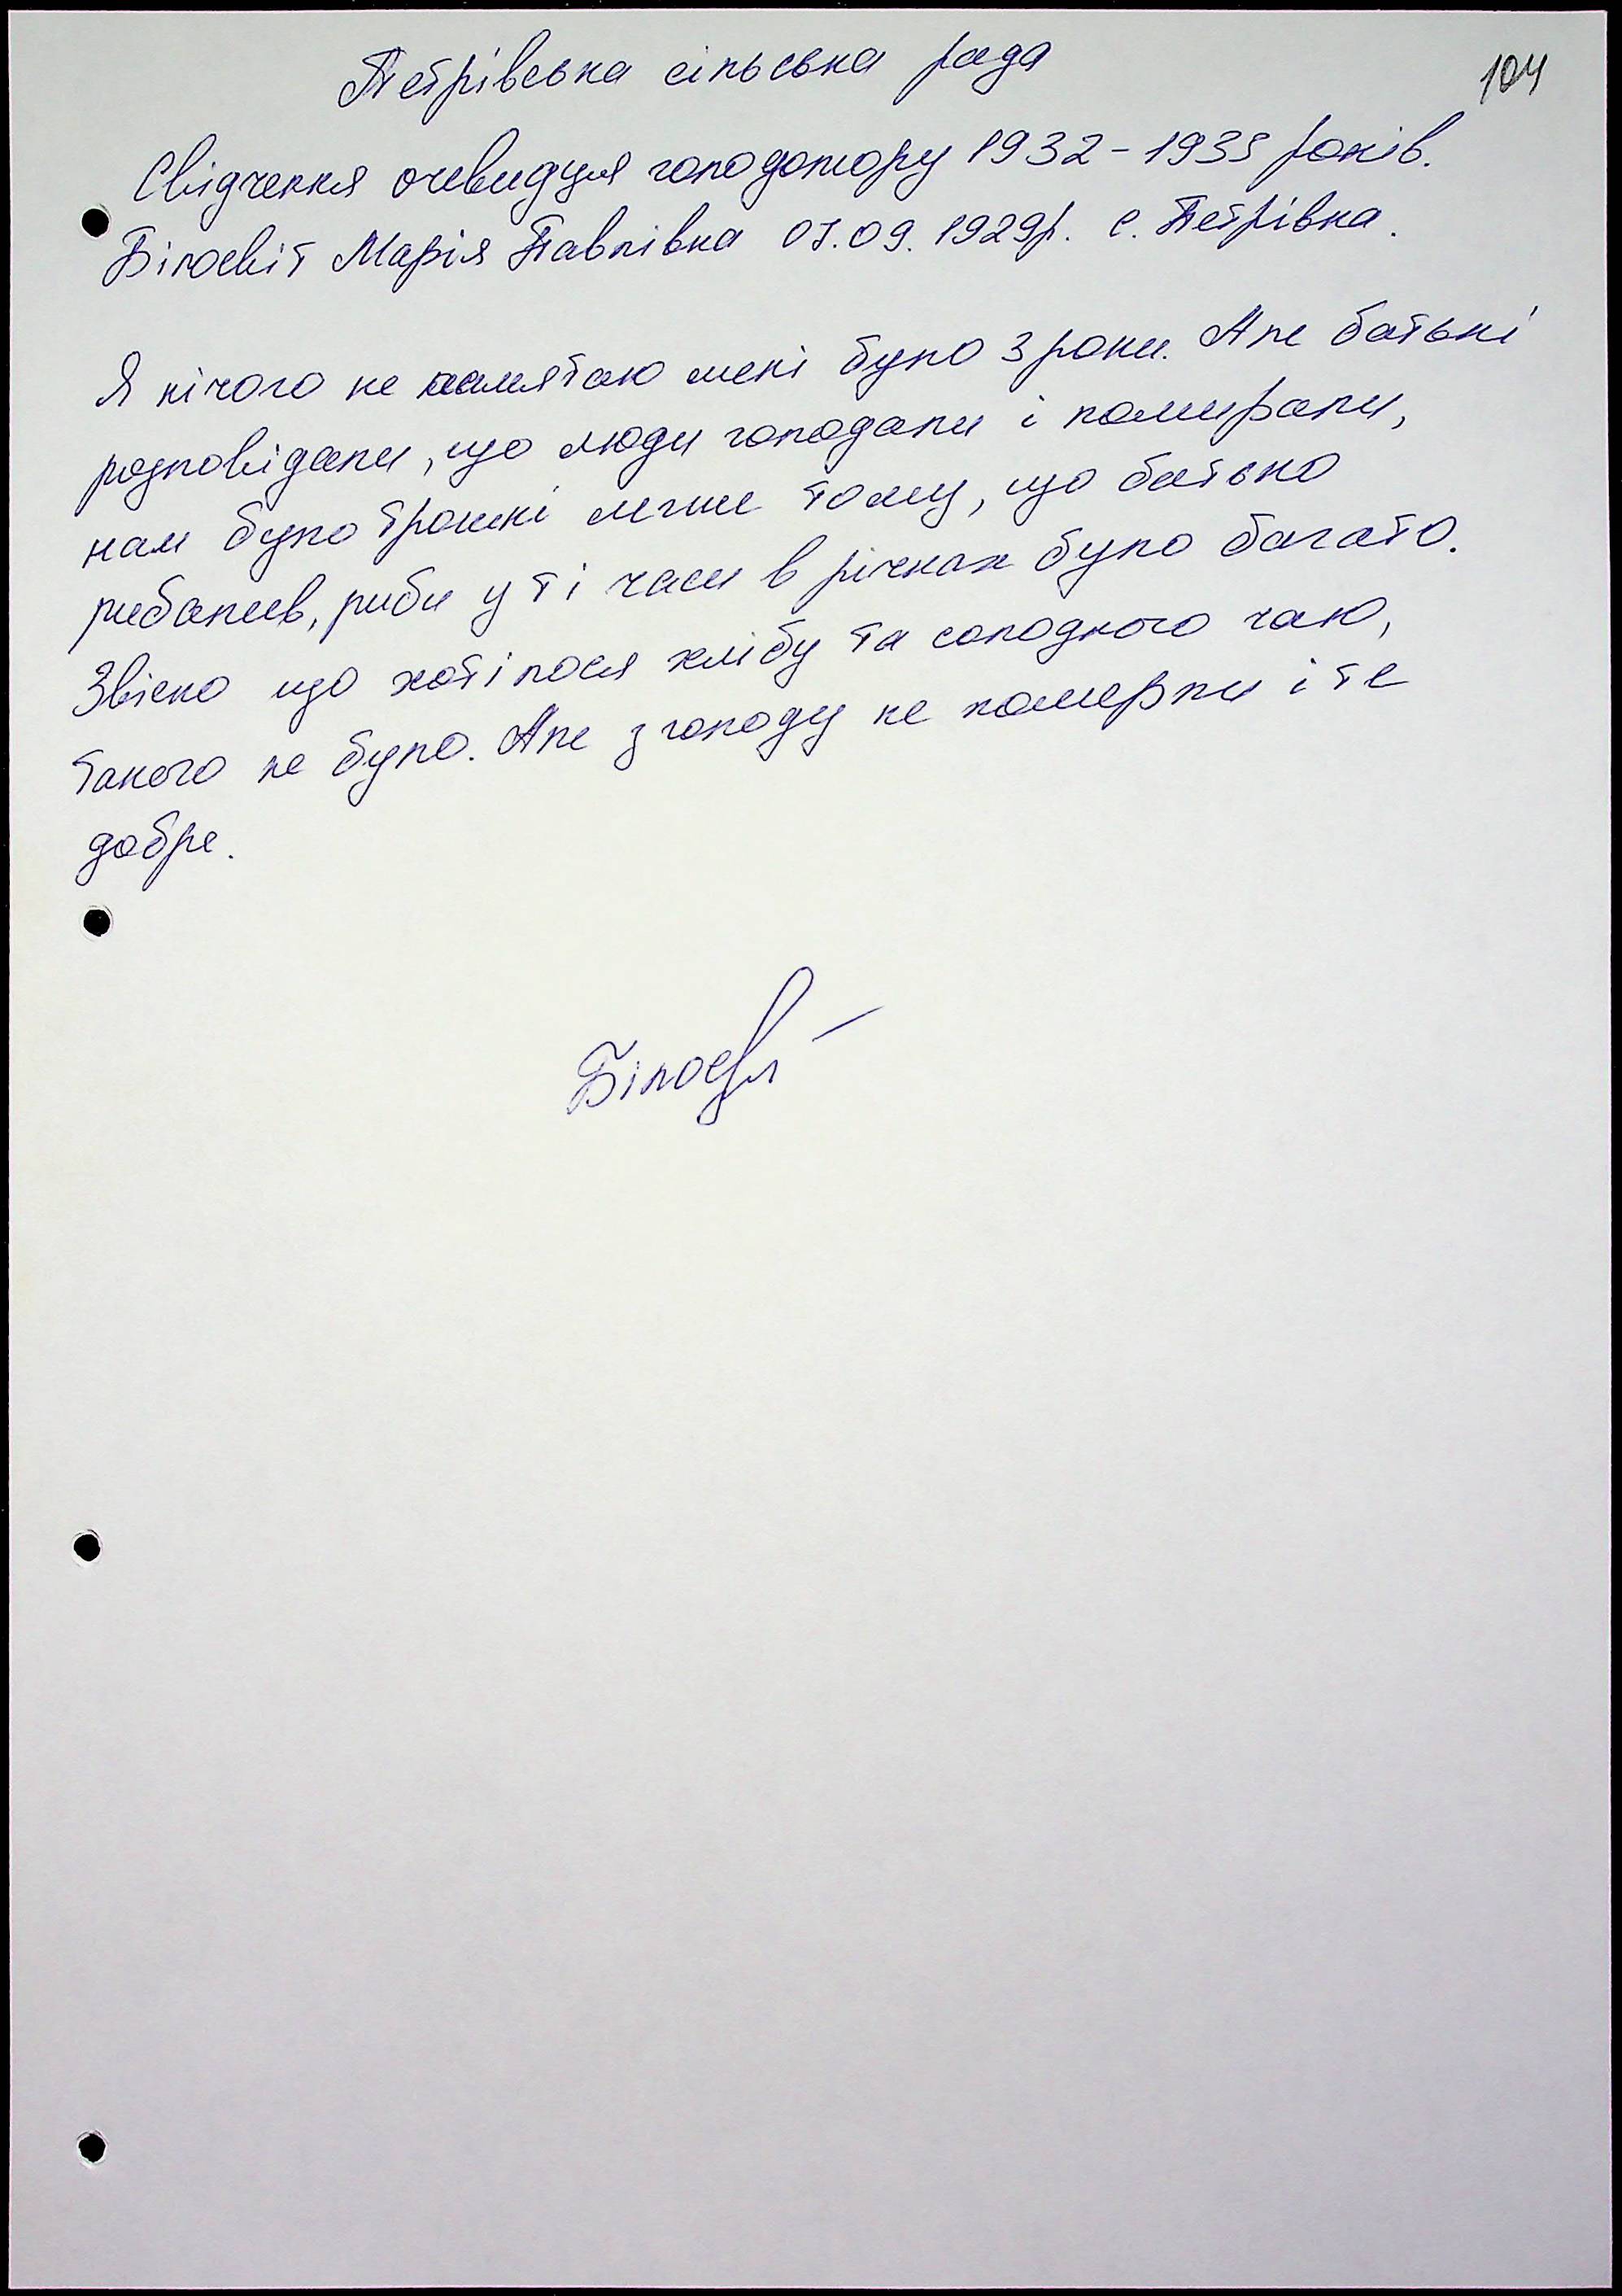 104
Петрівська сільська рада
Свідчення очевидця голодомору 1932-1933 років.
Білосвіт Марія Павлівна 07.09.1929р. с. Петрівка.
Я нічого не памятаю мені було 3 роки. Але батькі
розповідали, що люди голодали і помирали,
нам було трошкі легше тому, що батько
рибалив, риби у ті часи в річках було багато.
Звісно що хотілося хлібу та солодкого чаю,
такого не було. Але з голоду не померли і те
добре.